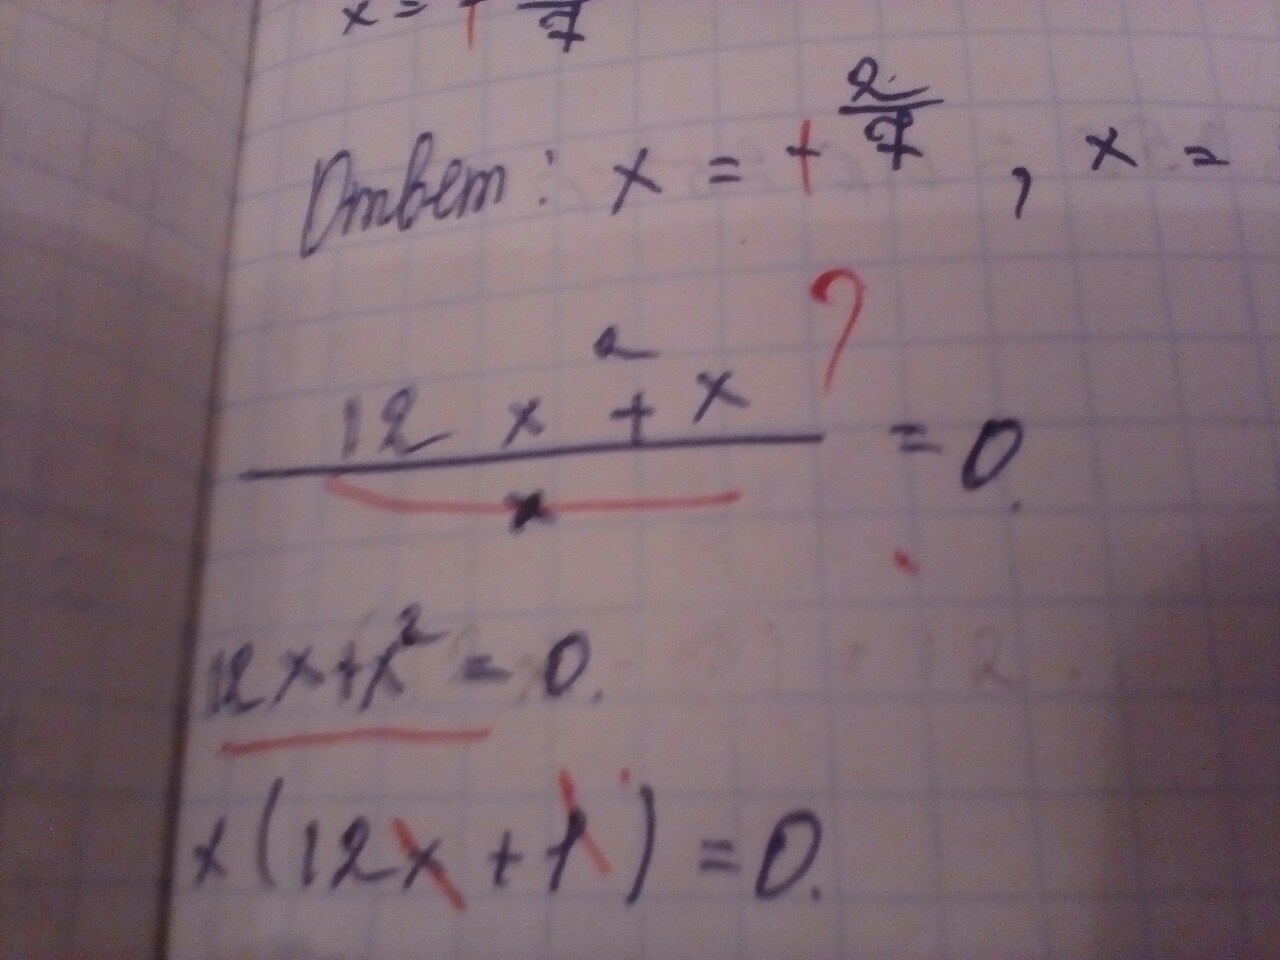 x = + —/7
Ответ: x = + 2/7 , x =
(12 x² + x)/x = 0. ?
12x+x² = 0.
x(12x + 1) = 0.